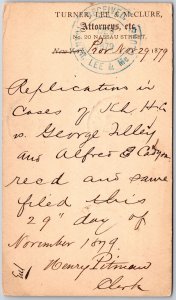 TURNER, LEE & McCLURE,
Attorneys, etc.
No. 20 NASSAU STREET,
New York, Prov Nov 29 1879
RECEIVED
LEE & Mc
Replication in
Cases of
vs. George Tilley
and Alfred
recd and same
filed this
29" day of
November 1879.
Henry Pitman
Clerk